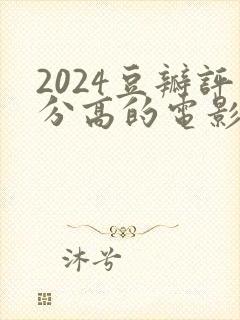 2024豆瓣評
分高的電影
沐兮